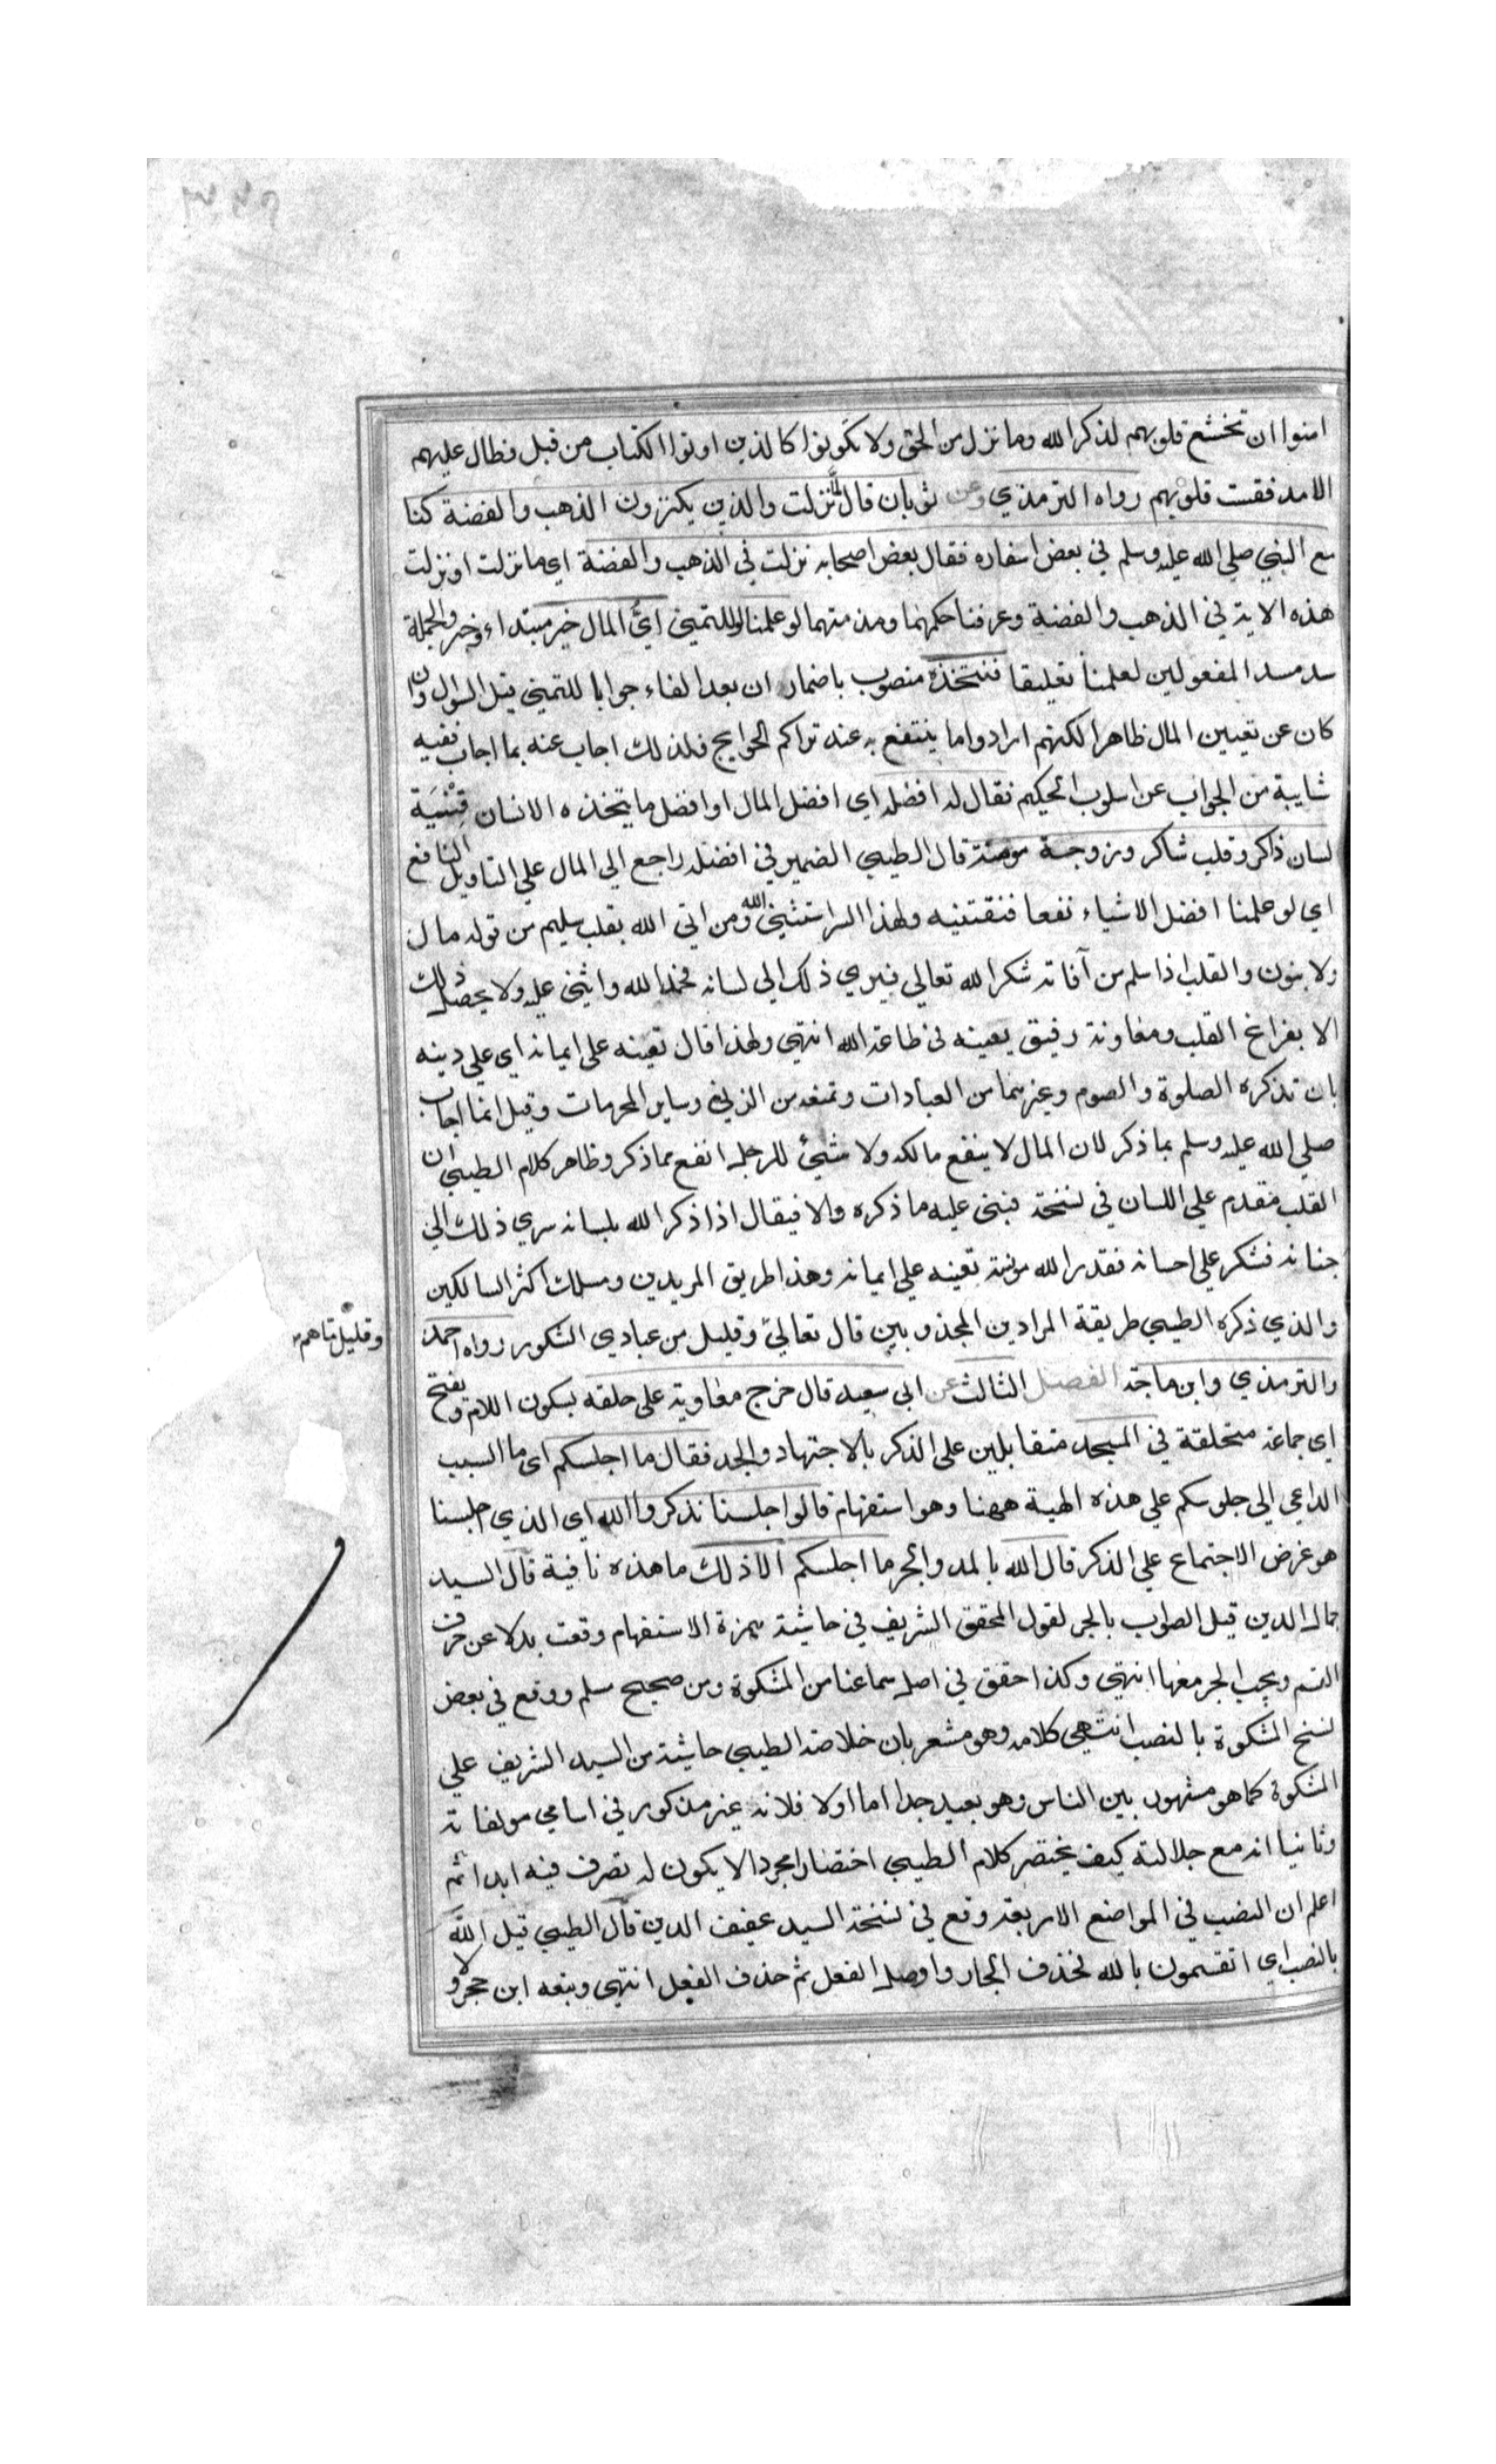 امنوا ان تخشع قلوبهم لذكر الله وما نزل من الحق ولا تكونوا كالذين اوتوا الكتاب من قبل فطال عليهم
الامد فقست قلوبهم رواه الترمذي وعن ثوبان قال لما نزلت والذين يكنزون الذهب والفضة كنا
مع النبي صلي الله عليه وسلم في بعض اسفاره فقال بعض اصحابه نزلت في الذهب والفضة اي ما نزلت او نزلت
هذه الاية في الذهب والفضة وعرفنا حكمهما ومذمتهما لو علمنا لو للتمني اي المال خير مبتداء وخبر والجملة
سد مسد المفعولين لعلمنا تعليقا فنتخذه منصوب باضمار ان بعد الفاء جوابا للتمني قيل السؤال وان
كان عن تعيين المال ظاهرا لكنهم ارادوا ما ينتفع به عند تراكم الحوايج فلذلك اجاب عنه بما اجاب ففيه
شايبة من الجواب عن اسلوب الحكيم فقال له افضله اي افضل المال او افضل ما يتخذه الانسان قنية
لسان ذاكر وقلب شاكر وزوجة مومنة قال الطيبي الضمير في افضله راجع الي المال علي التاويل النافع
اي لو علمنا افضل الاشياء نفعا فنقتنيه ولهذا السر استثني الله من اتي الله بقلب سليم من قوله مال
ولا بنون والقلب اذا سلم من آفاته شكر الله تعالي فسري ذلك الي لسانه فحمد الله واثني عليه ولا يحصل ذلك
الا بفراغ القلب ومعاونة رفيق يعينه في طاعة الله انتهي ولهذا قال تعينه علي ايمانه اي علي دينه
بان تذكره الصلوة والصوم وغيرهما من العبادات وتمنعه من الزني وساير المحرمات وقيل انما اجاب
صلي الله عليه وسلم بما ذكر لان المال لا ينفع مالكه ولا شيئ للرجل انفع مما ذكر وظاهر كلام الطيبي ان
القلب مقدم علي اللسان في نسخة فبني عليه ما ذكره والا فيقال اذا ذكر الله بلسانه سري ذلك الي
جنانه فشكر علي احسانه فقدر الله مونة تعينه علي ايمانه وهذا طريق المريدين ومسلك اكثر السالكين
والذي ذكره الطيبي طريقة المرادين المجذوبين قال تعالي وقليل من عبادي الشكور رواه احمد
وقليل ما هم
والترمذي وابن ماجة الفصل الثالث عن ابي سعيد قال خرج معاوية علي حلقه بسكون اللام وتفتح
اي جماعة متحلقة في المسجد متقابلين علي الذكر بالاجتهاد والجد فقال ما اجلسكم اي ما السبب
الداعي الي جلوسكم علي هذه الهيية ههنا وهو استفهام قالوا جلسنا نذكر والله اي الذي اجلسنا
هو غرض الاجتماع علي الذكر قال الله بالمد والجر ما اجلسكم الا ذلك ما هذه نافية قال السيد
جمال الدين قيل الصواب بالجر لقول المحقق الشريف في حاشيته همزة الاستفهام وقعت بدلا عن حرف
القسم ويجب الجر معها انتهي وكذا حقق في اصل سماعنا من المشكوة ومن صحيح مسلم ووقع في بعض
نسخ المشكوة بالنصب انتهي كلامه وهو مشعر بان خلاصة الطيبي حاشية من السيد الشريف علي
المشكوة كما هو مشهور بين الناس وهو بعيد جدا اما اولا فلانه غير مذكور في اسامي مولفاته
وثانيا انه مع جلالته كيف يختصر كلام الطيبي اختصارا مجردا لا يكون له تصرف فيه ابدا ثم
اعلم ان النصب في المواضع الاربعة وقع في نسخة السيد عفيف الدين قال الطيبي قيل الله
بالنصب اي اتقسمون بالله فحذف الجار واوصل الفعل ثم حذف الفعل انتهي وتبعه ابن حجر ولا